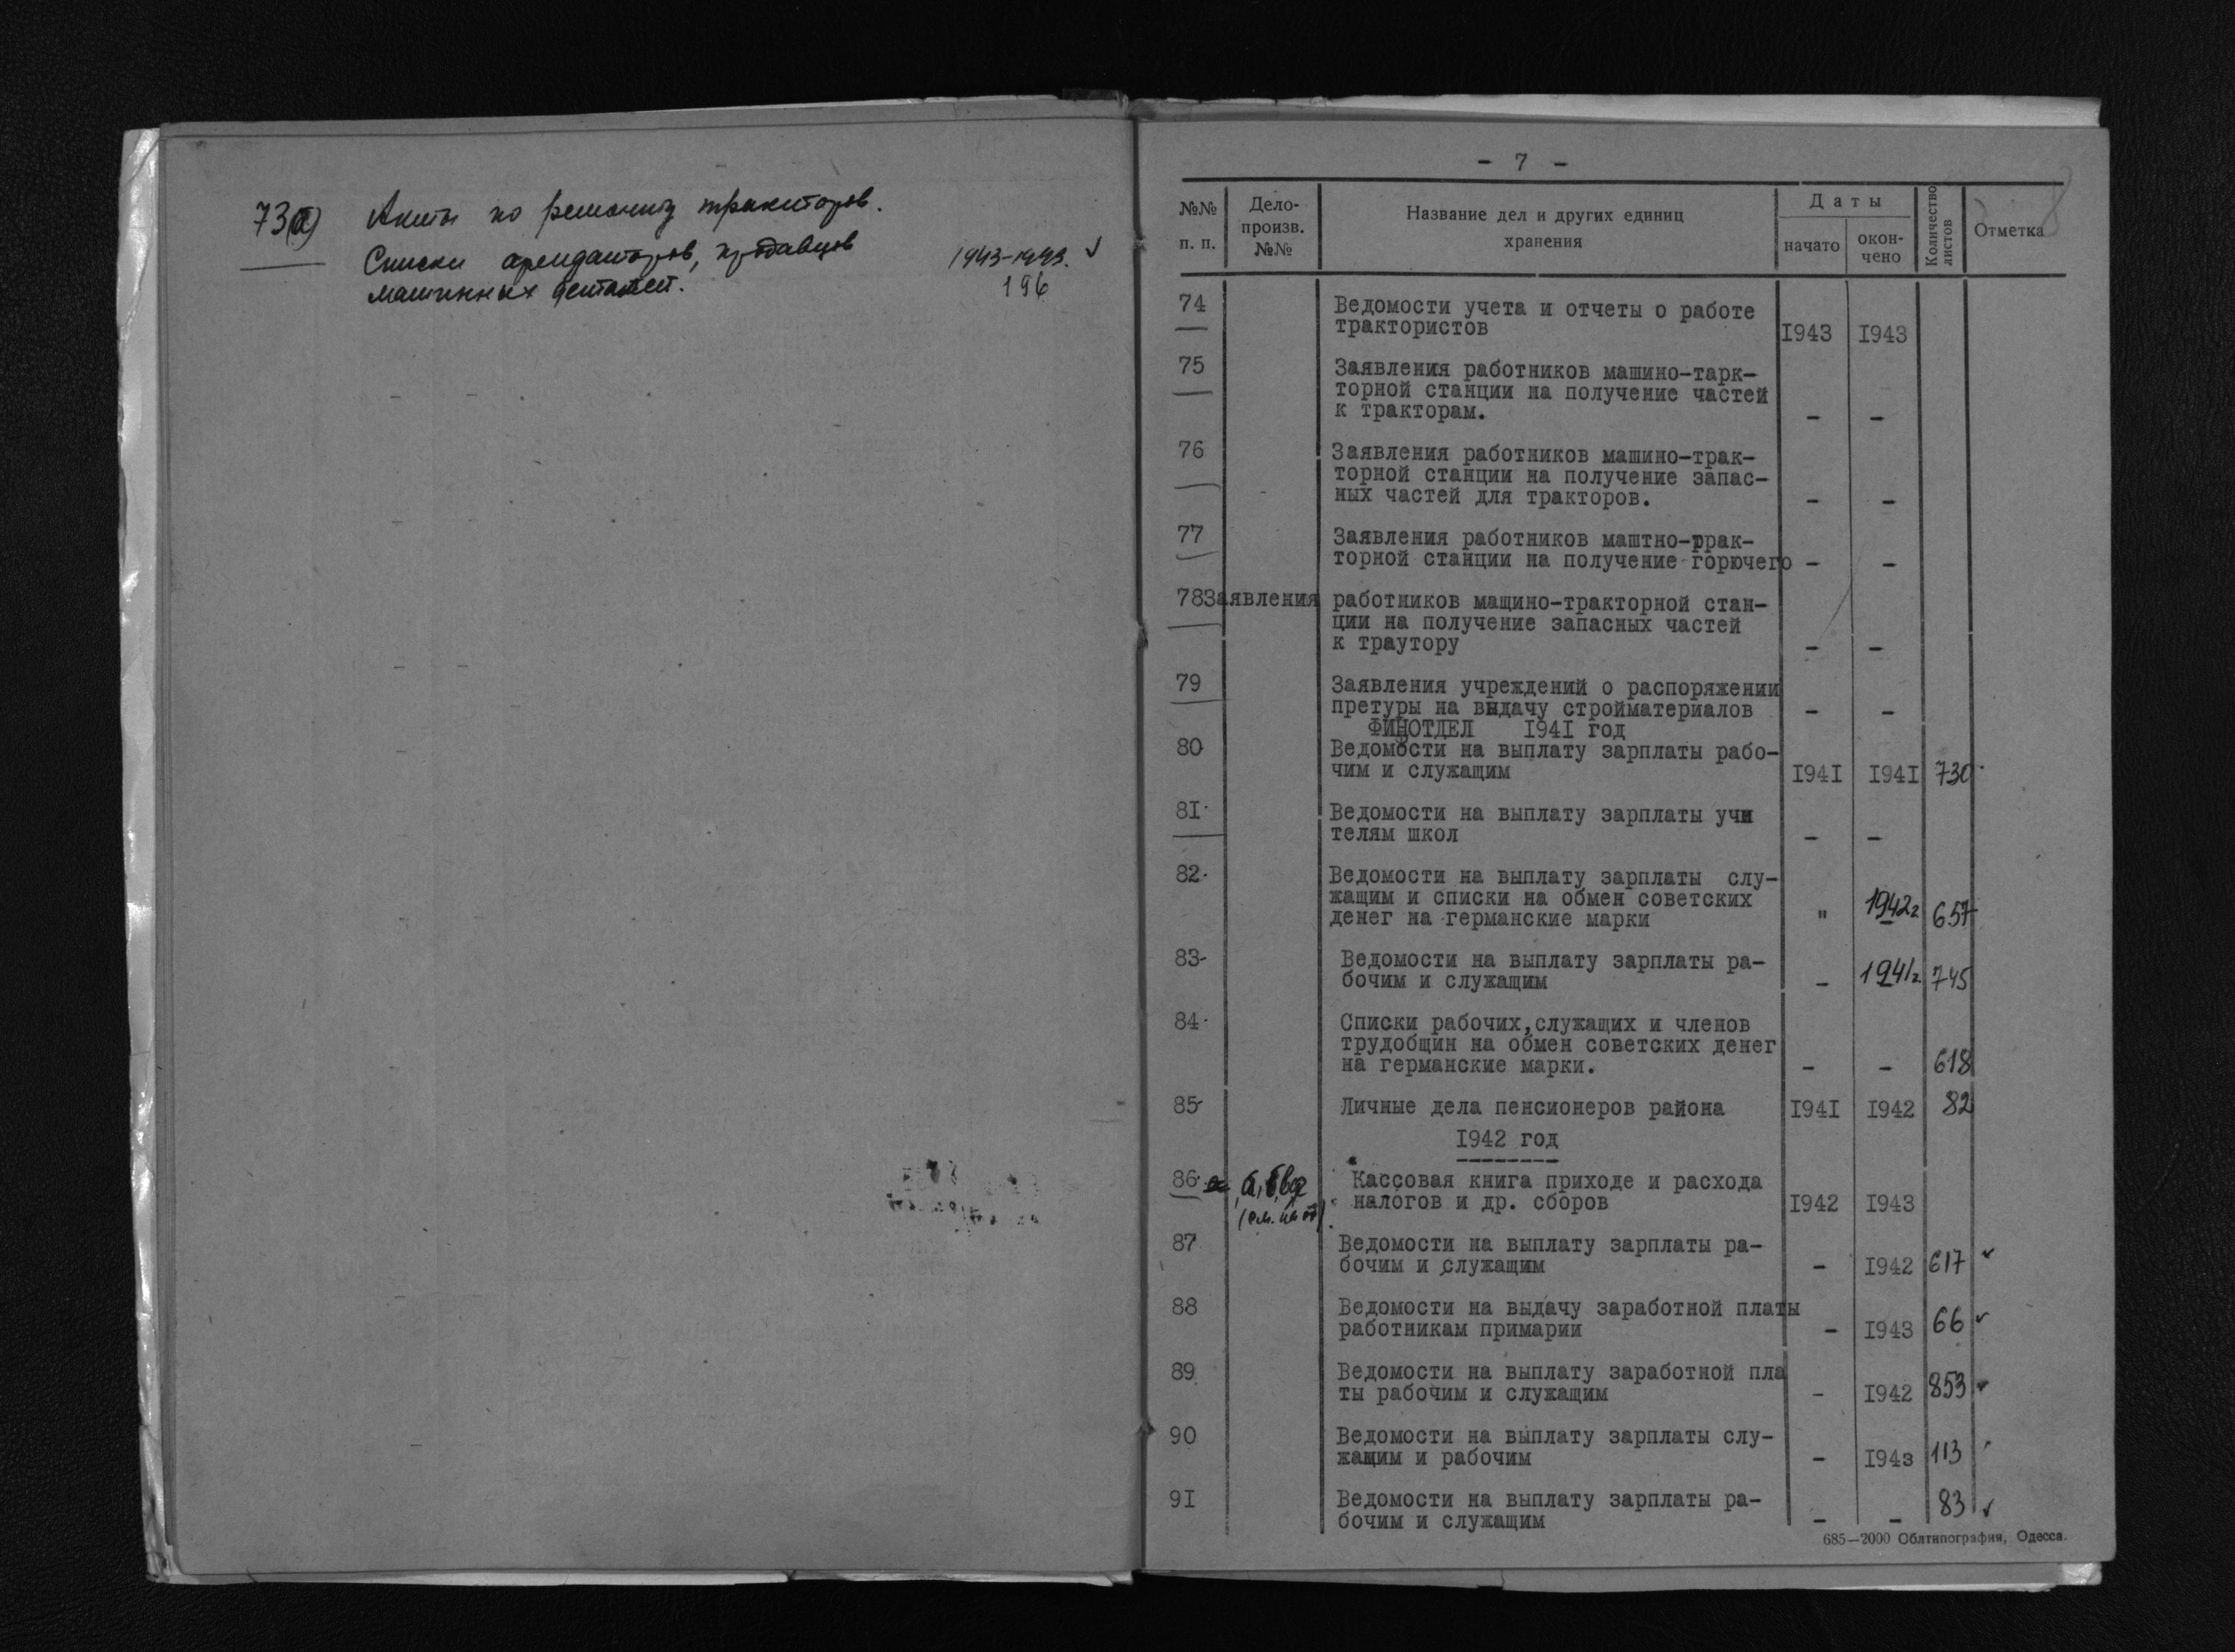 73(а) Акты по ремонту тракторов.
Списки арендаторов, продавцов 1943-1943. ✓
машинных деталей. 196
- 7 -
№№ п. п. Дело-произв. №№ Название дел и других единиц хранения Даты начато окончено Количество листов Отметка
8
74 Ведомости учета и отчеты о работе
трактористов I943 I943
75 Заявления работников машино-тарк-
торной станции на получение частей
к тракторам. - -
76 Заявления работников машино-трак-
торной станции на получение запас-
ных частей для тракторов. - -
77 Заявления работников маштно-ррак-
торной станции на получение горючего - -
78 Заявления работников мащино-тракторной стан-
ции на получение запасных частей
к траутору - -
79 Заявления учреждений о распоряжении
претуры на выдачу стройматериалов - -
ФИНОТДЕЛ I94I год
80 Ведомости на выплату зарплаты рабо-
чим и служащим I94I I94I 730
8I Ведомости на выплату зарплаты учи
телям школ - -
82 Ведомости на выплату зарплаты слу-
жащим и списки на обмен советских
денег на германские марки " 1942г 657
83 Ведомости на выплату зарплаты ра-
бочим и служащим - 1941г 745
84 Списки рабочих,служащих и членов
трудобщин на обмен советских денег
на германские марки. - - 618
85 Личные дела пенсионеров района I94I I942 82
I942 год
86 а, б, в Кассовая книга приходе и расхода
налогов и др. сборов I942 I943
87 Ведомости на выплату зарплаты ра-
бочим и служащим - I942 617 ✓
88 Ведомости на выдачу заработной платы
работникам примарии - I943 66 ✓
89 Ведомости на выплату заработной пла
ты рабочим и служащим - I942 853 ✓
90 Ведомости на выплату зарплаты слу-
жащим и рабочим - I943 113
9I Ведомости на выплату зарплаты ра-
бочим и служащим - - 83 ✓
685—2000 Облтипография, Одесса.